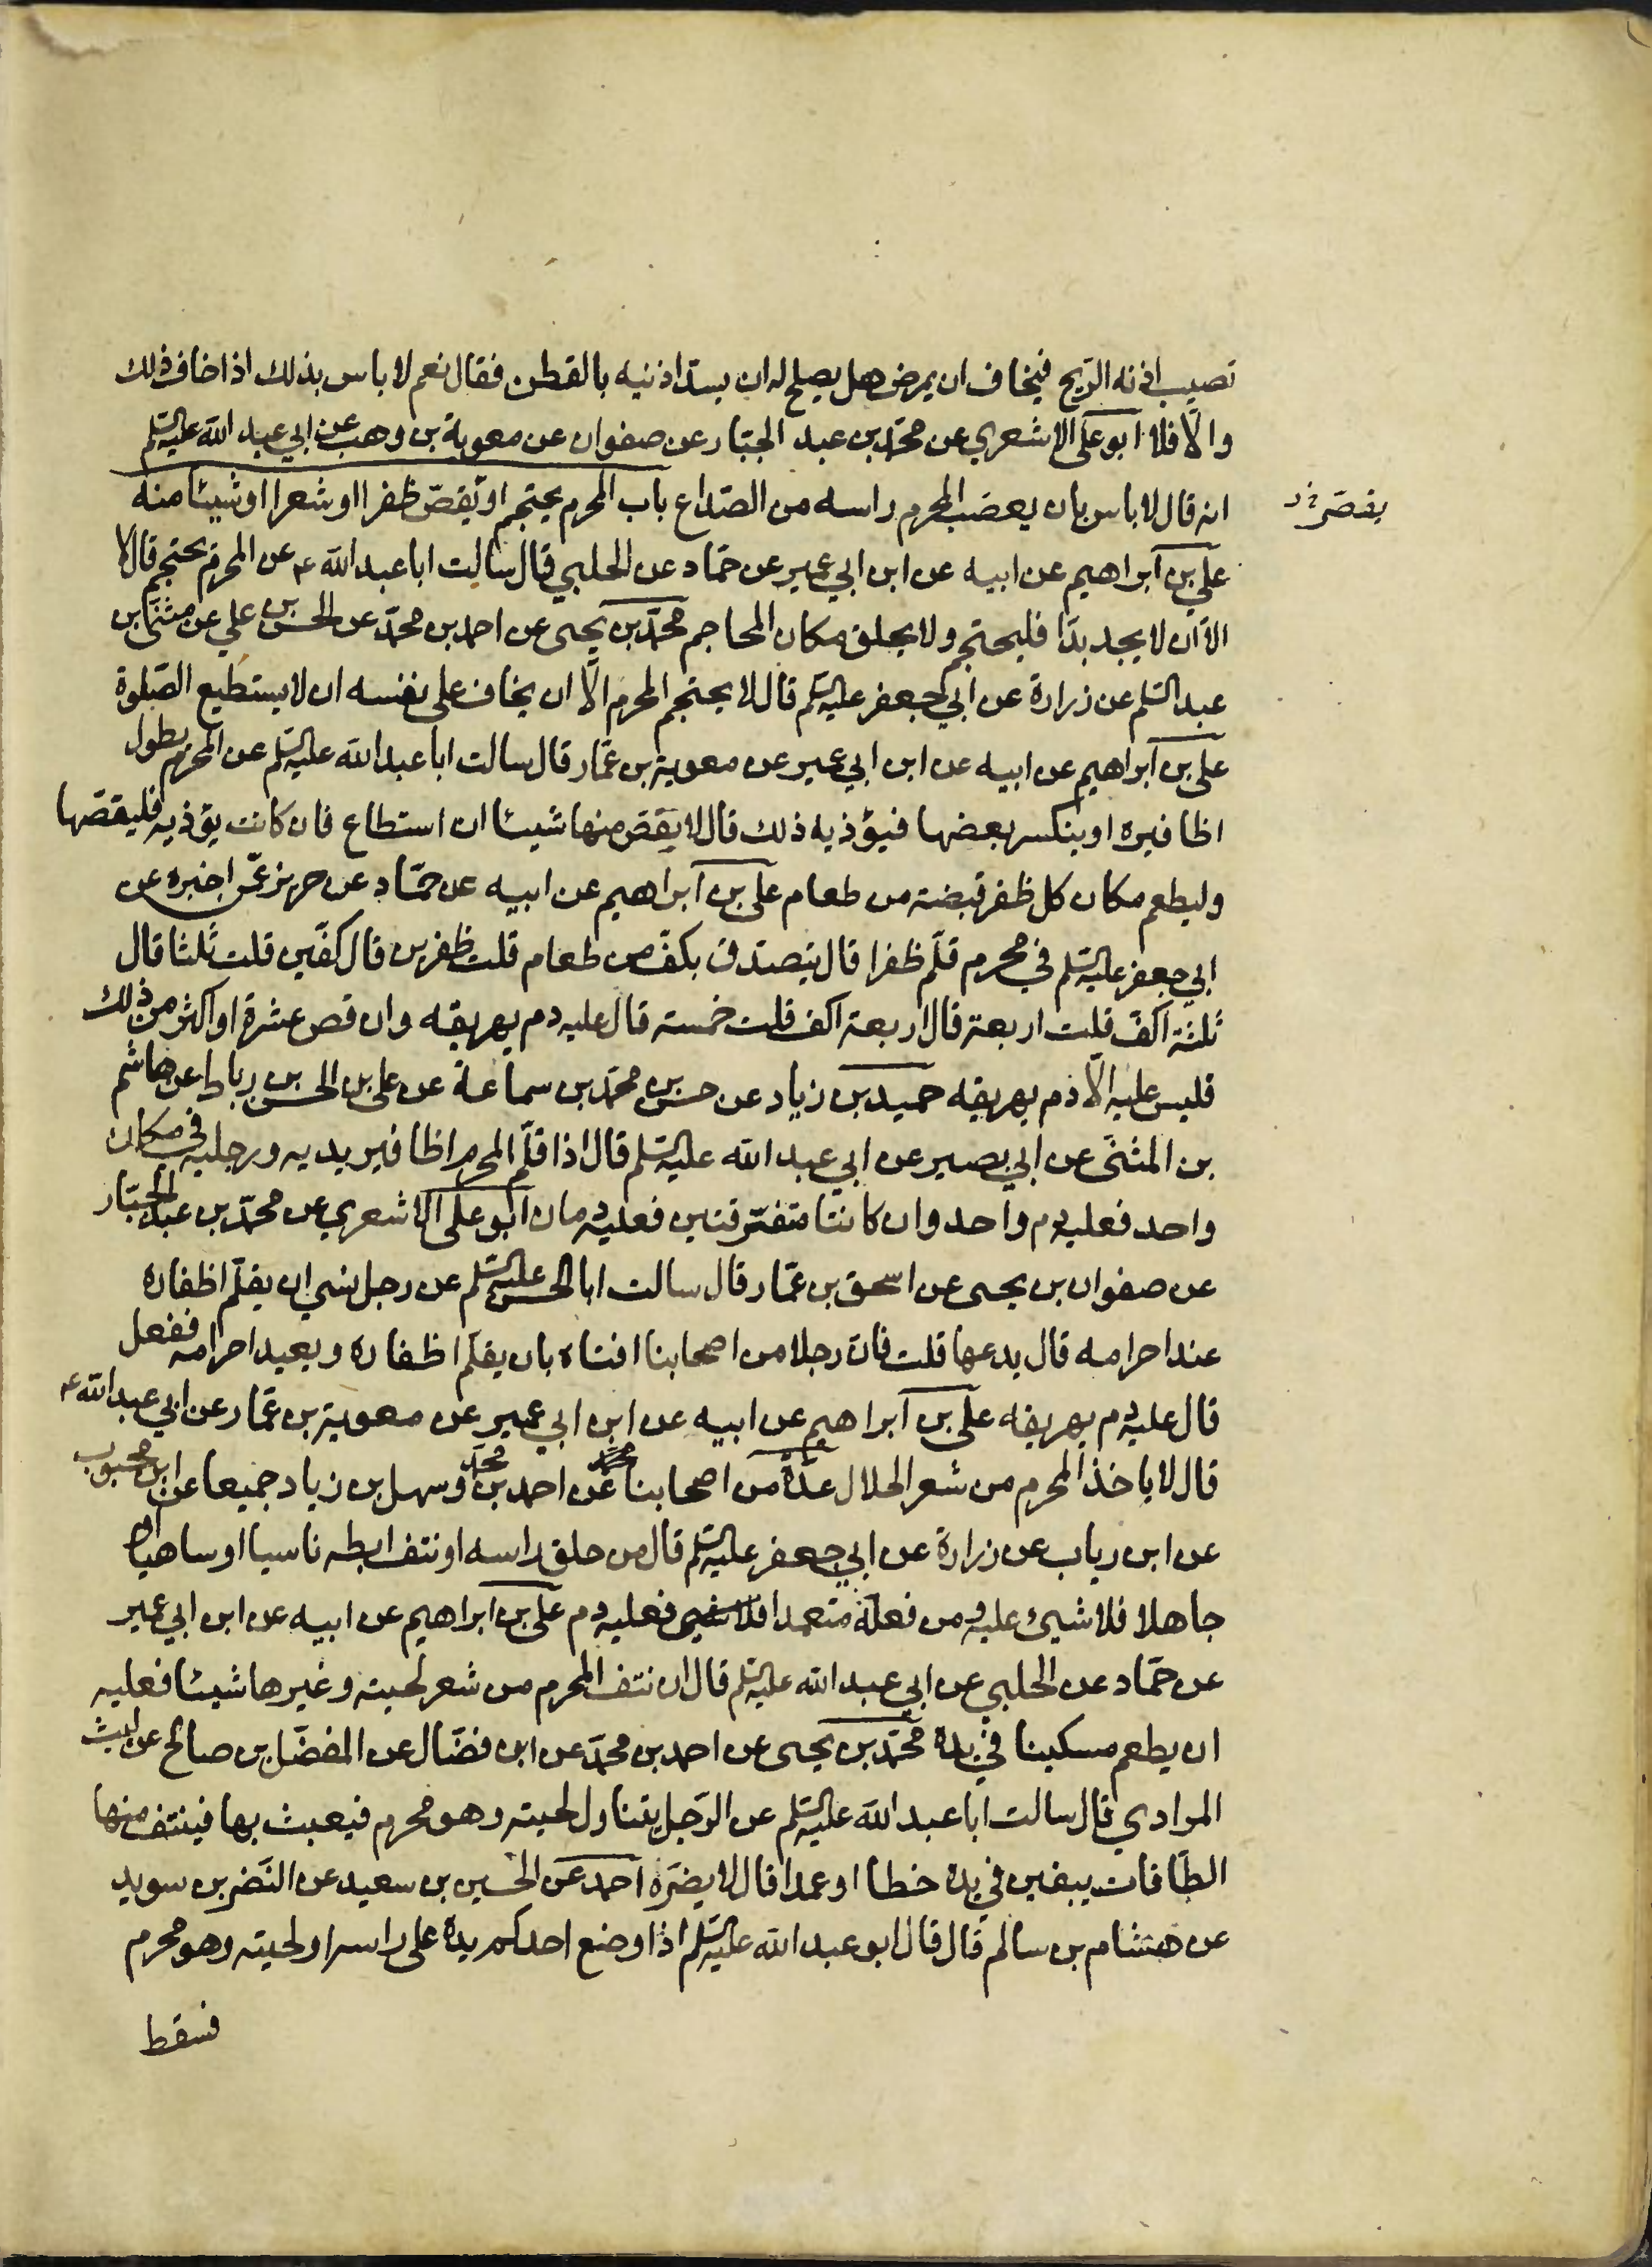 تصيب اذنه الريح فيخاف ان يمرض هل يصلح له ان يسدّ اذنيه بالقطن فقال نعم لا باس بذلك اذا خاف ذلك
والّا فلا ابو على الاشعري عن محمّد بن عبد الجبّار عن صفوان عن معوية بن وهب عن ابي عبد الله عليه السّلم
انه قال لا باس بان يعصب المحرم راسه من الصّداع باب المحرم يحتجم او يقصّ ظفرا او شعرا او شيئا منه
يقصّر خ د
علي بن ابراهيم عن ابيه عن ابن ابي عمير عن حمّاد عن الحلبي قال سالت ابا عبد الله ع عن المحرم يحتجم قال لا
الا ان لا يجد بدّا فليحتجم ولا يحلق مكان المحاجم محمّد بن يحيى عن احمد بن محمّد عن الحسن بن علي عن مثنّى بن
عبد السّلم عن زرارة عن ابي جعفر عليه السّلم قال لا يحتجم المحرم الّا ان يخاف على نفسه ان لا يستطيع الصّلوة
على بن ابراهيم عن ابيه عن ابن ابي عمير عن معوية بن عمّار قال سالت ابا عبد الله عليه السّلم عن المحرم يطول
اظافيره او ينكسر بعضها فيؤذيه ذلك قال لا يقصّ منها شيئا ان استطاع فان كانت يؤذيه فليقصّها
وليطعم مكان كل ظفر قبضة من طعام على بن ابراهيم عن ابيه عن حمّاد عن حريز عمّن اخبره عن
ابي جعفر عليه السّلم في محرم قلّم ظفرا قال يتصدق بكفّ من طعام قلت ظفرين قال كفّين قلت ثلثا قال
ثلثة اكفّ قلت اربعة قال اربعة اكف قلت خمسة قال عليه دم يهريقه وان قص عشرة او اكثر من ذلك
فليس عليه الّا دم يهريقه حميد بن زياد عن حسن بن محمّد بن سماعة عن على بن الحسن بن رباط عن هاشم
بن المثنّى عن ابي بصير عن ابي عبد الله عليه السّلم قال اذا قلّم المحرم اظافير يديه ورجليه في مكان
واحد فعليه دم واحد وان كانتا متفرّقتين فعليه دمان ابو على الاشعري عن محمّد بن عبد الجبّار
عن صفوان بن يحيى عن اسحق بن عمّار قال سالت ابا الحسن عليه السّلم عن رجل نسي ان يقلّم اظفاره
عند احرامه قال يدعها قلت فان رجلا من اصحابنا افتاه بان يقلّم اظفاره ويعيد احرامه ففعل
قال عليه دم يهريقه على بن ابراهيم عن ابيه عن ابن ابي عمير عن معوية بن عمّار عن ابي عبد الله ع
قال لا ياخذ المحرم من شعر الحلال عدّة من اصحابنا عن احمد بن محمّد وسهل بن زياد جميعا عن ابن محبوب
عن ابن رياب عن زرارة عن ابي جعفر عليه السّلم قال من حلق راسه او نتف ابطه ناسيا او ساهيا او
جاهلا فلا شيئ عليه ومن فعله متعمدا فعليه دم على بن ابراهيم عن ابيه عن ابن ابي عمير
عن حمّاد عن الحلبي عن ابي عبد الله عليه السّلم قال ان نتف المحرم من شعر لحيته وغيرها شيئا فعليه
ان يطعم مسكينا في يده محمّد بن يحيى عن احمد بن محمّد عن ابن فضّال عن المفضّل بن صالح عن ليث
المرادي قال سالت ابا عبد الله عليه السّلم عن الرّجل يتناول لحيته وهو محرم فيعبث بها فينتف منها
الطّاقات يبقين في يده خطا او عمدا قال لا يضرّه احمد عن الحسين بن سعيد عن النّضر بن سويد
عن هشام بن سالم قال قال ابو عبد الله عليه السّلم اذا وضع احدكم يده على راسه او لحيته وهو محرم
فسقط